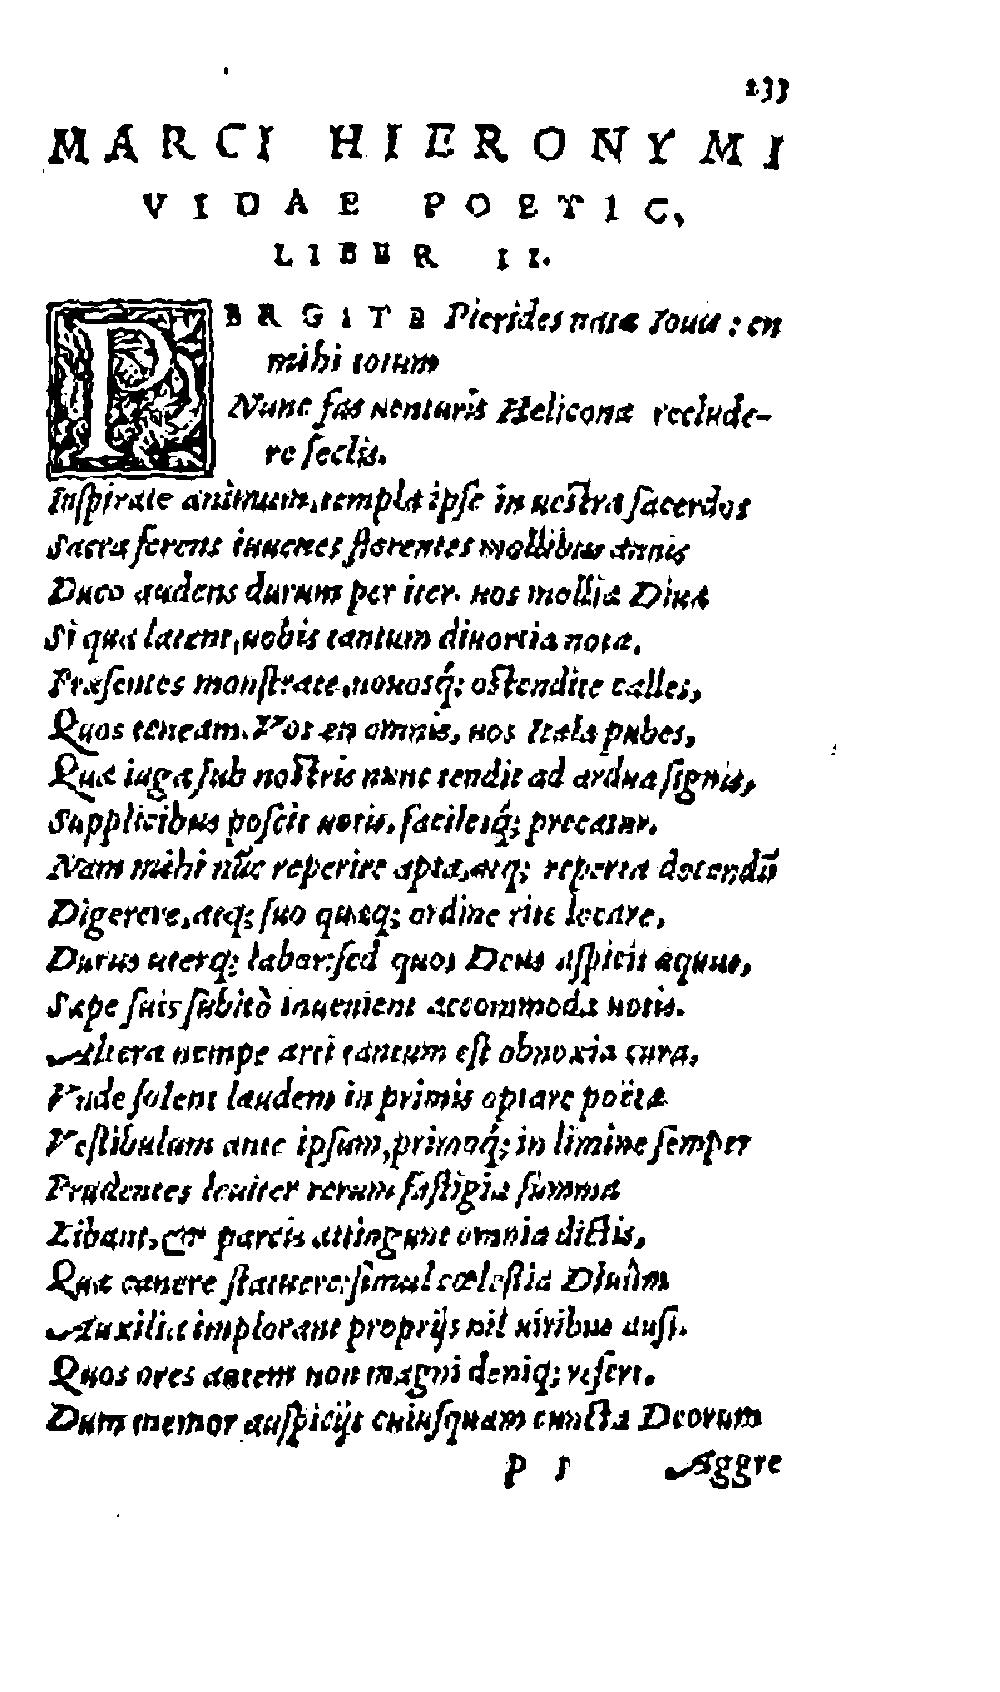 233
MARCI HIERONYMI
VIDAE POETIC,
LIBER II.
PERGITE Pierides natæ Iouis : en
mihi totum
Nunc fas uenturis Helicona reclude-
re ſeclis.
Inſpirate animum, templa ipſe in ueſtra ſacerdos
Sacra ferens iuuenes florentes mollibus annis
Duco audens durum per iter. uos mollia Diuæ
Si qua latent, uobis tantum diuortia nota,
Præſentes monſtrate, nouosq́; oſtendite calles,
Quos teneam. Vos en omnis, uos Itala pubes,
Quæ iuga ſub noſtris nunc tendit ad ardua ſignis,
Supplicibus poſcit uotis, facilesq́; precatur.
Nam mihi nūc reperire apta, atq; reperta docendū
Digerere, atq; ſuo quæq; ordine rite locare,
Durus uterq; labor: ſed quos Deus aſpicit æquus,
Sæpe ſuis ſubitò inuenient accommoda uotis.
Altera nempe arti tantum eſt obnoxia cura,
Vnde ſolent laudem in primis optare poëtæ
Veſtibulum ante ipſum, primoq́; in limine ſemper
Prudentes leuiter rerum faſtigia ſumma
Libant, & parcis attingunt omnia dictis,
Quæ canere ſtatuere: ſimul cœleſtia Diuûm
Auxilia implorant proprijs nil uiribus auſi.
Quos ores autem non magni deniq; refert.
Dum memor auſpicijs cuiuſquam cuncta Deorum
P 5 Aggre